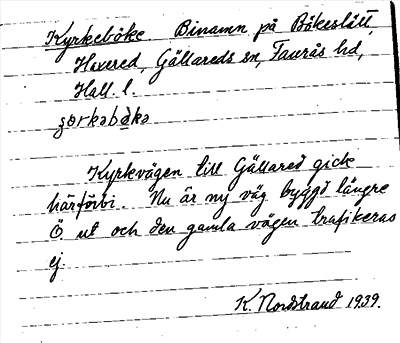 Kyrkeböke Binamn på Bökeslätt,
Havered, Gällareds sn, Faurås hd,
Hall. l.
ʂørkəbøkə
Kyrkvägen till Gällared gick
härförbi. Nu är ny väg byggd längre
Ö. ut och den gamla vägen trafikeras
ej.
K. Nordstrand 1939.